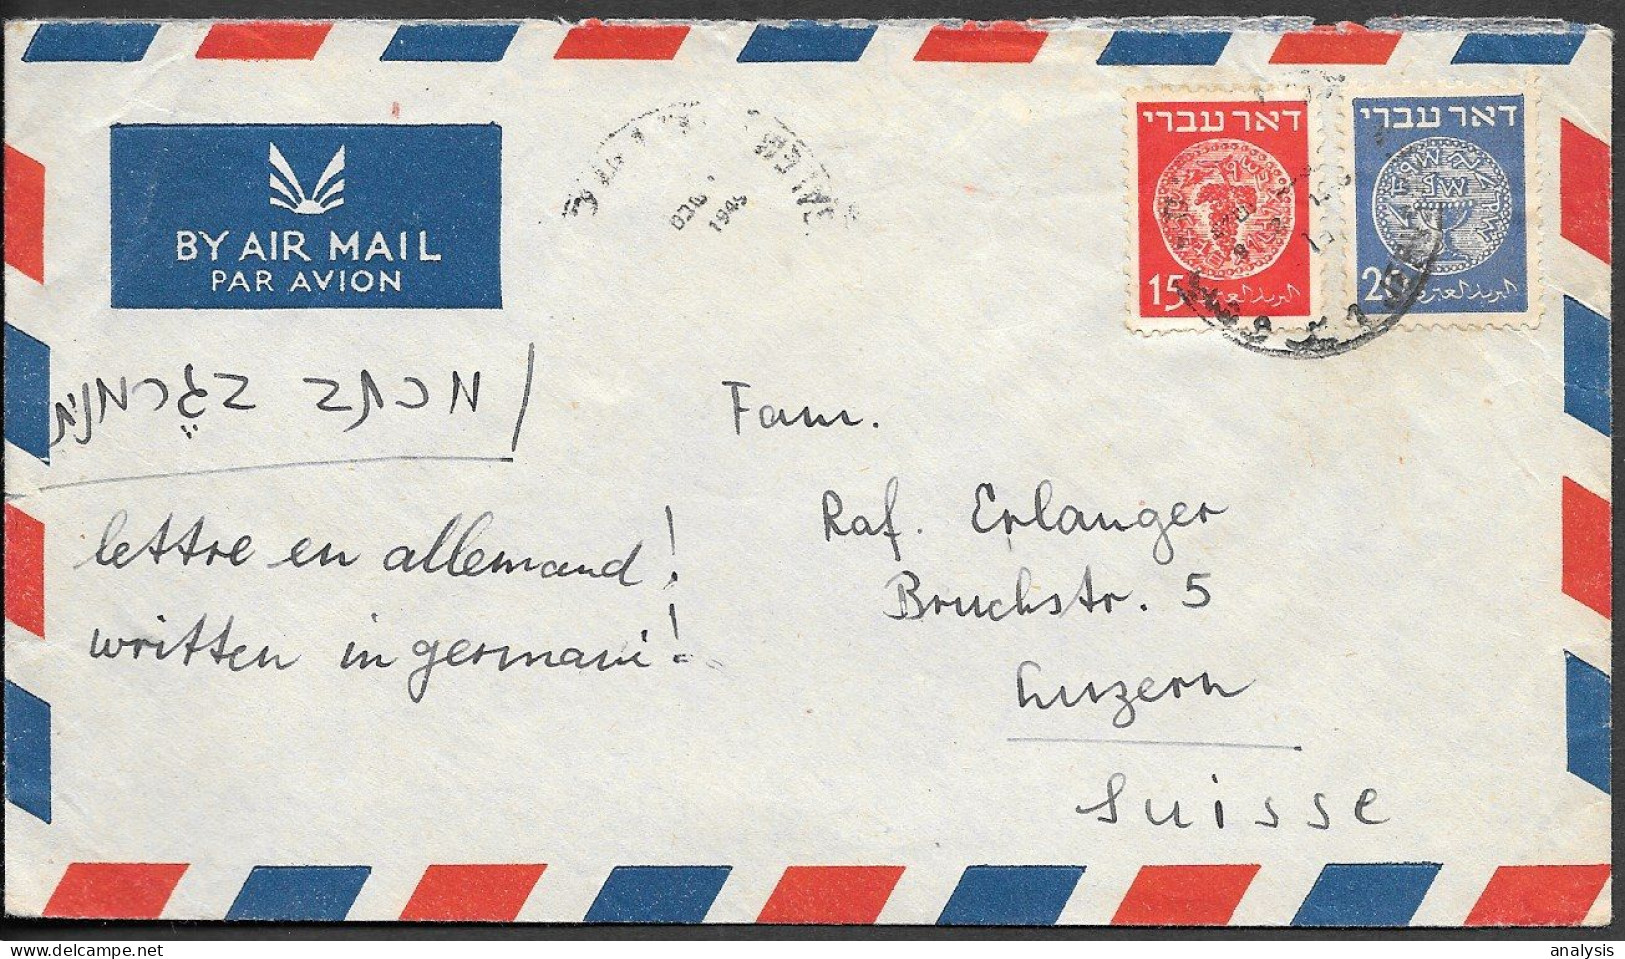 BY AIR MAIL
PAR AVION
דאר עברי
15
البريد العبري
דאר עברי
20
البريد العبري
מכתב בגרמנית
lettre en allemand!
written in german!
Fam.
Raf. Erlanger
Bruchstr. 5
Luzern
Suisse
analysis